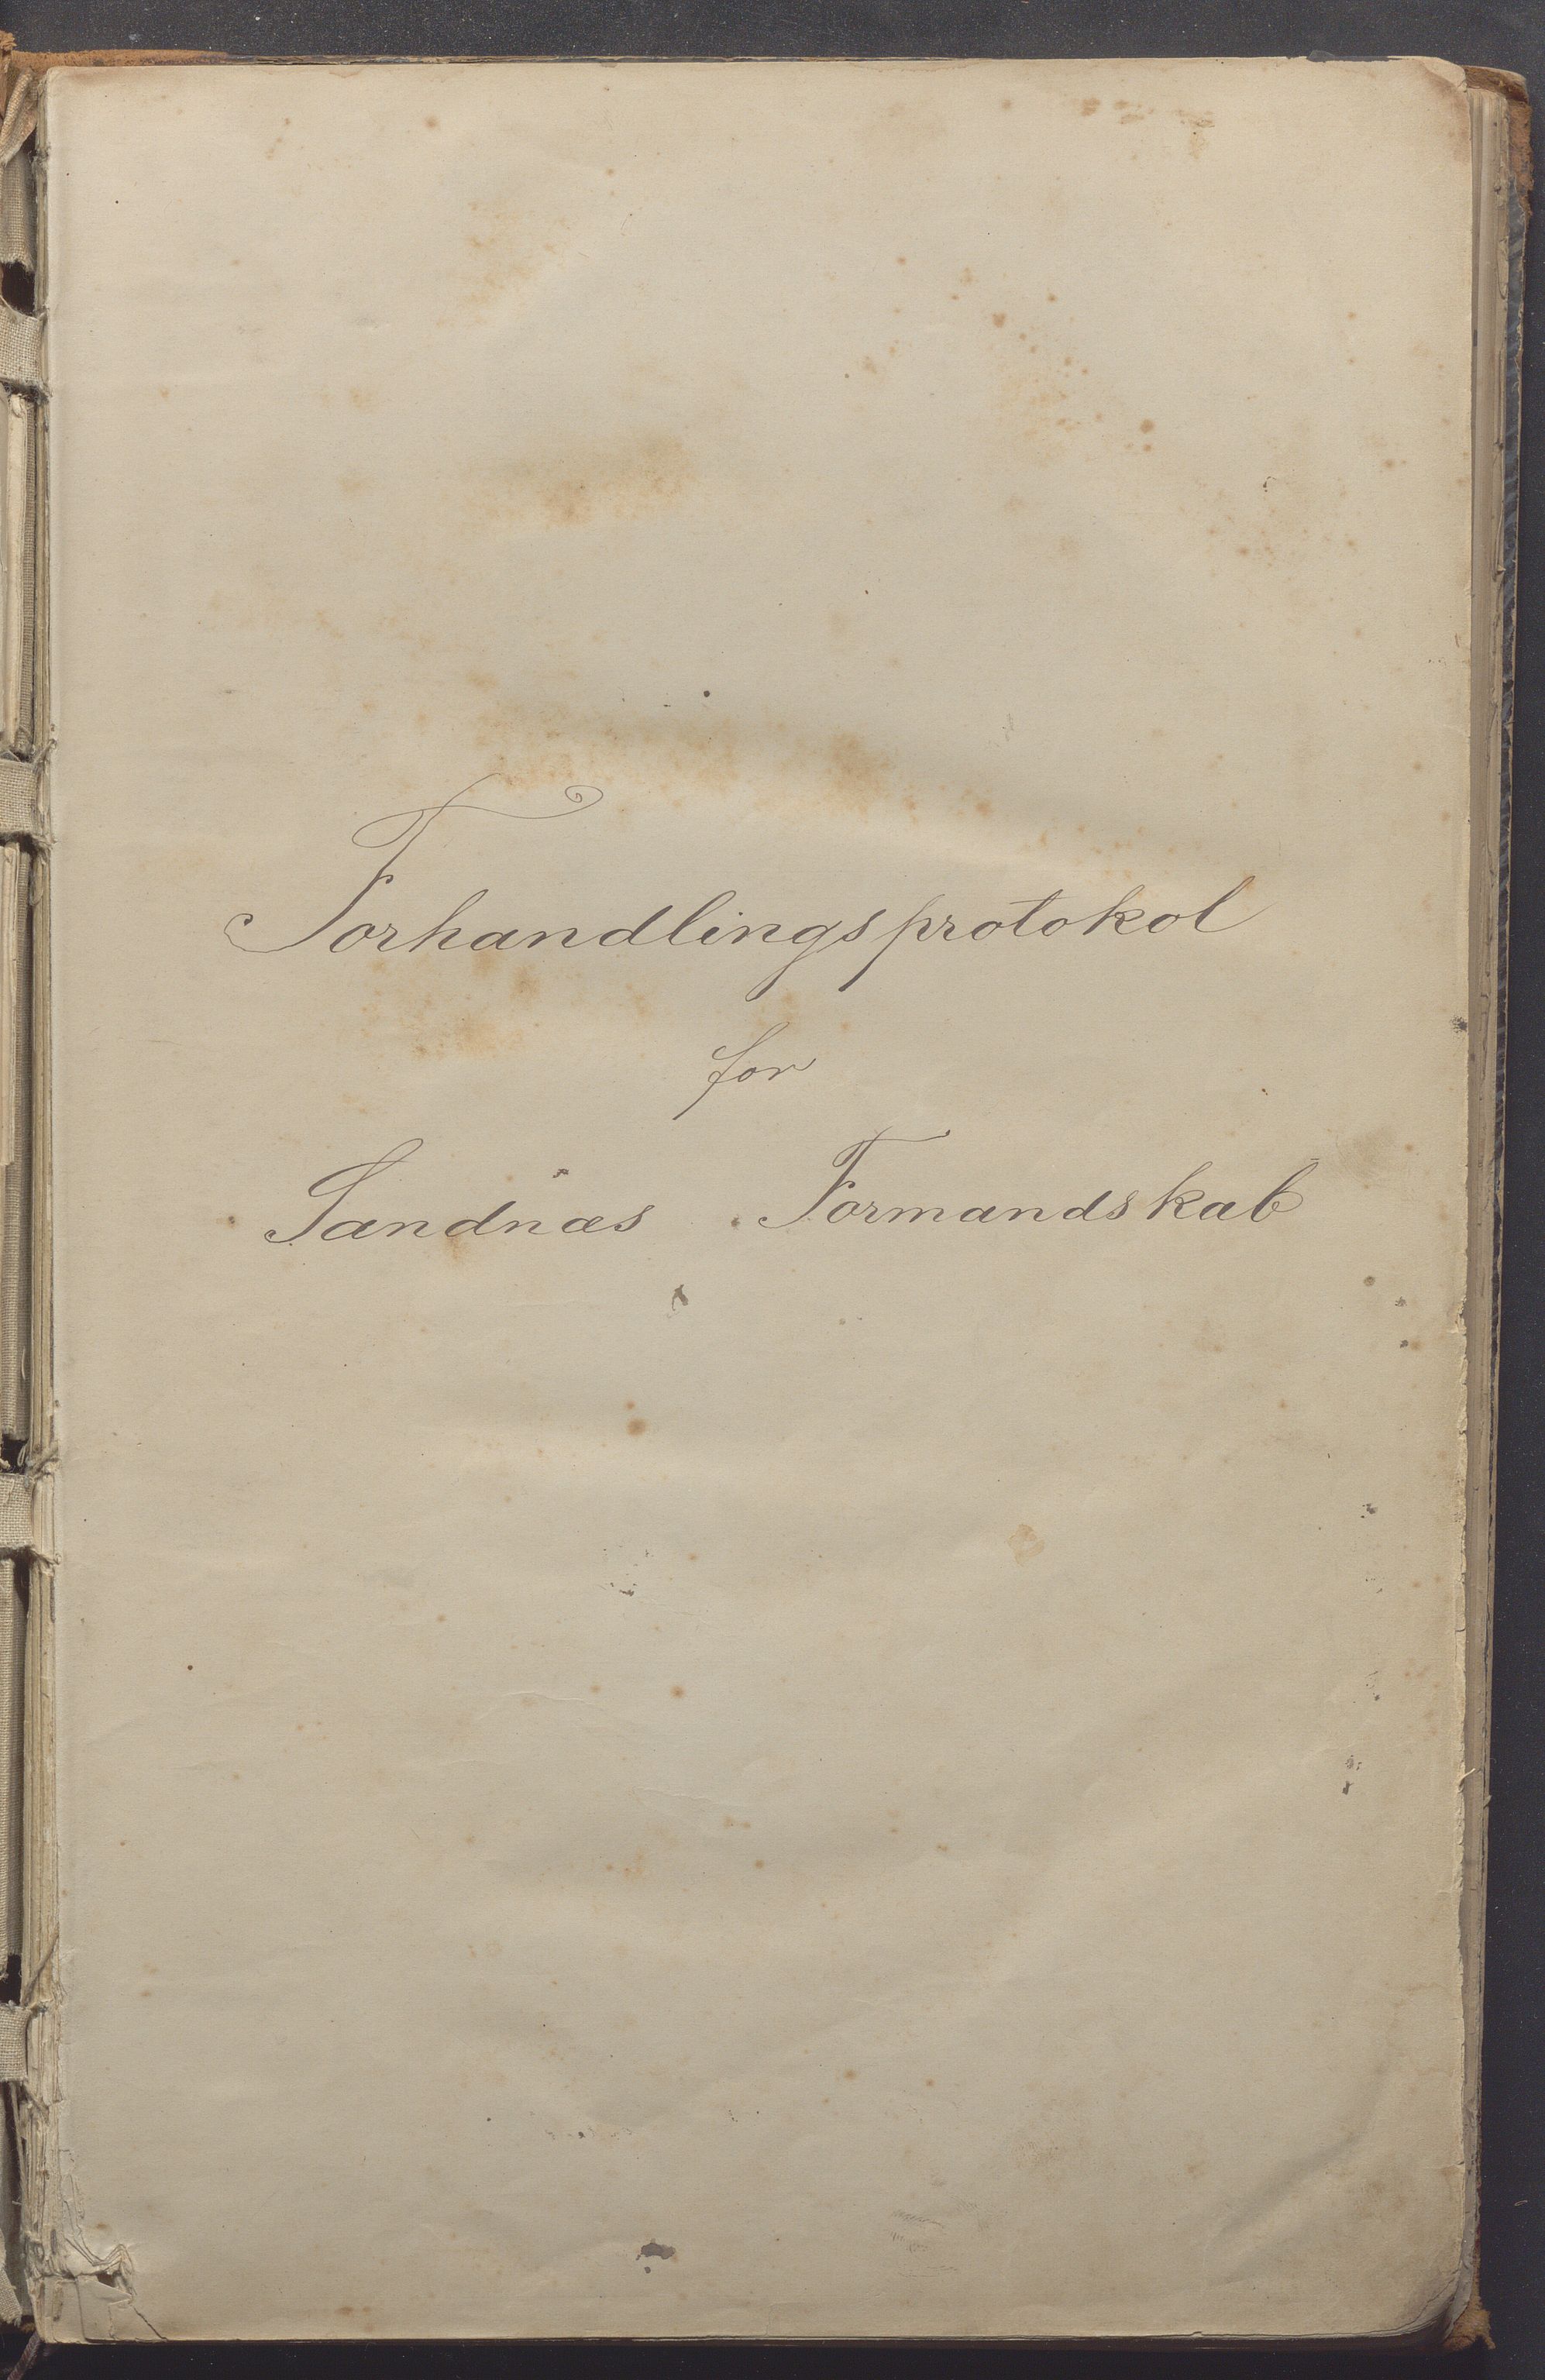 Forhandlingsprotokol
for
Sandnæs Formandskab